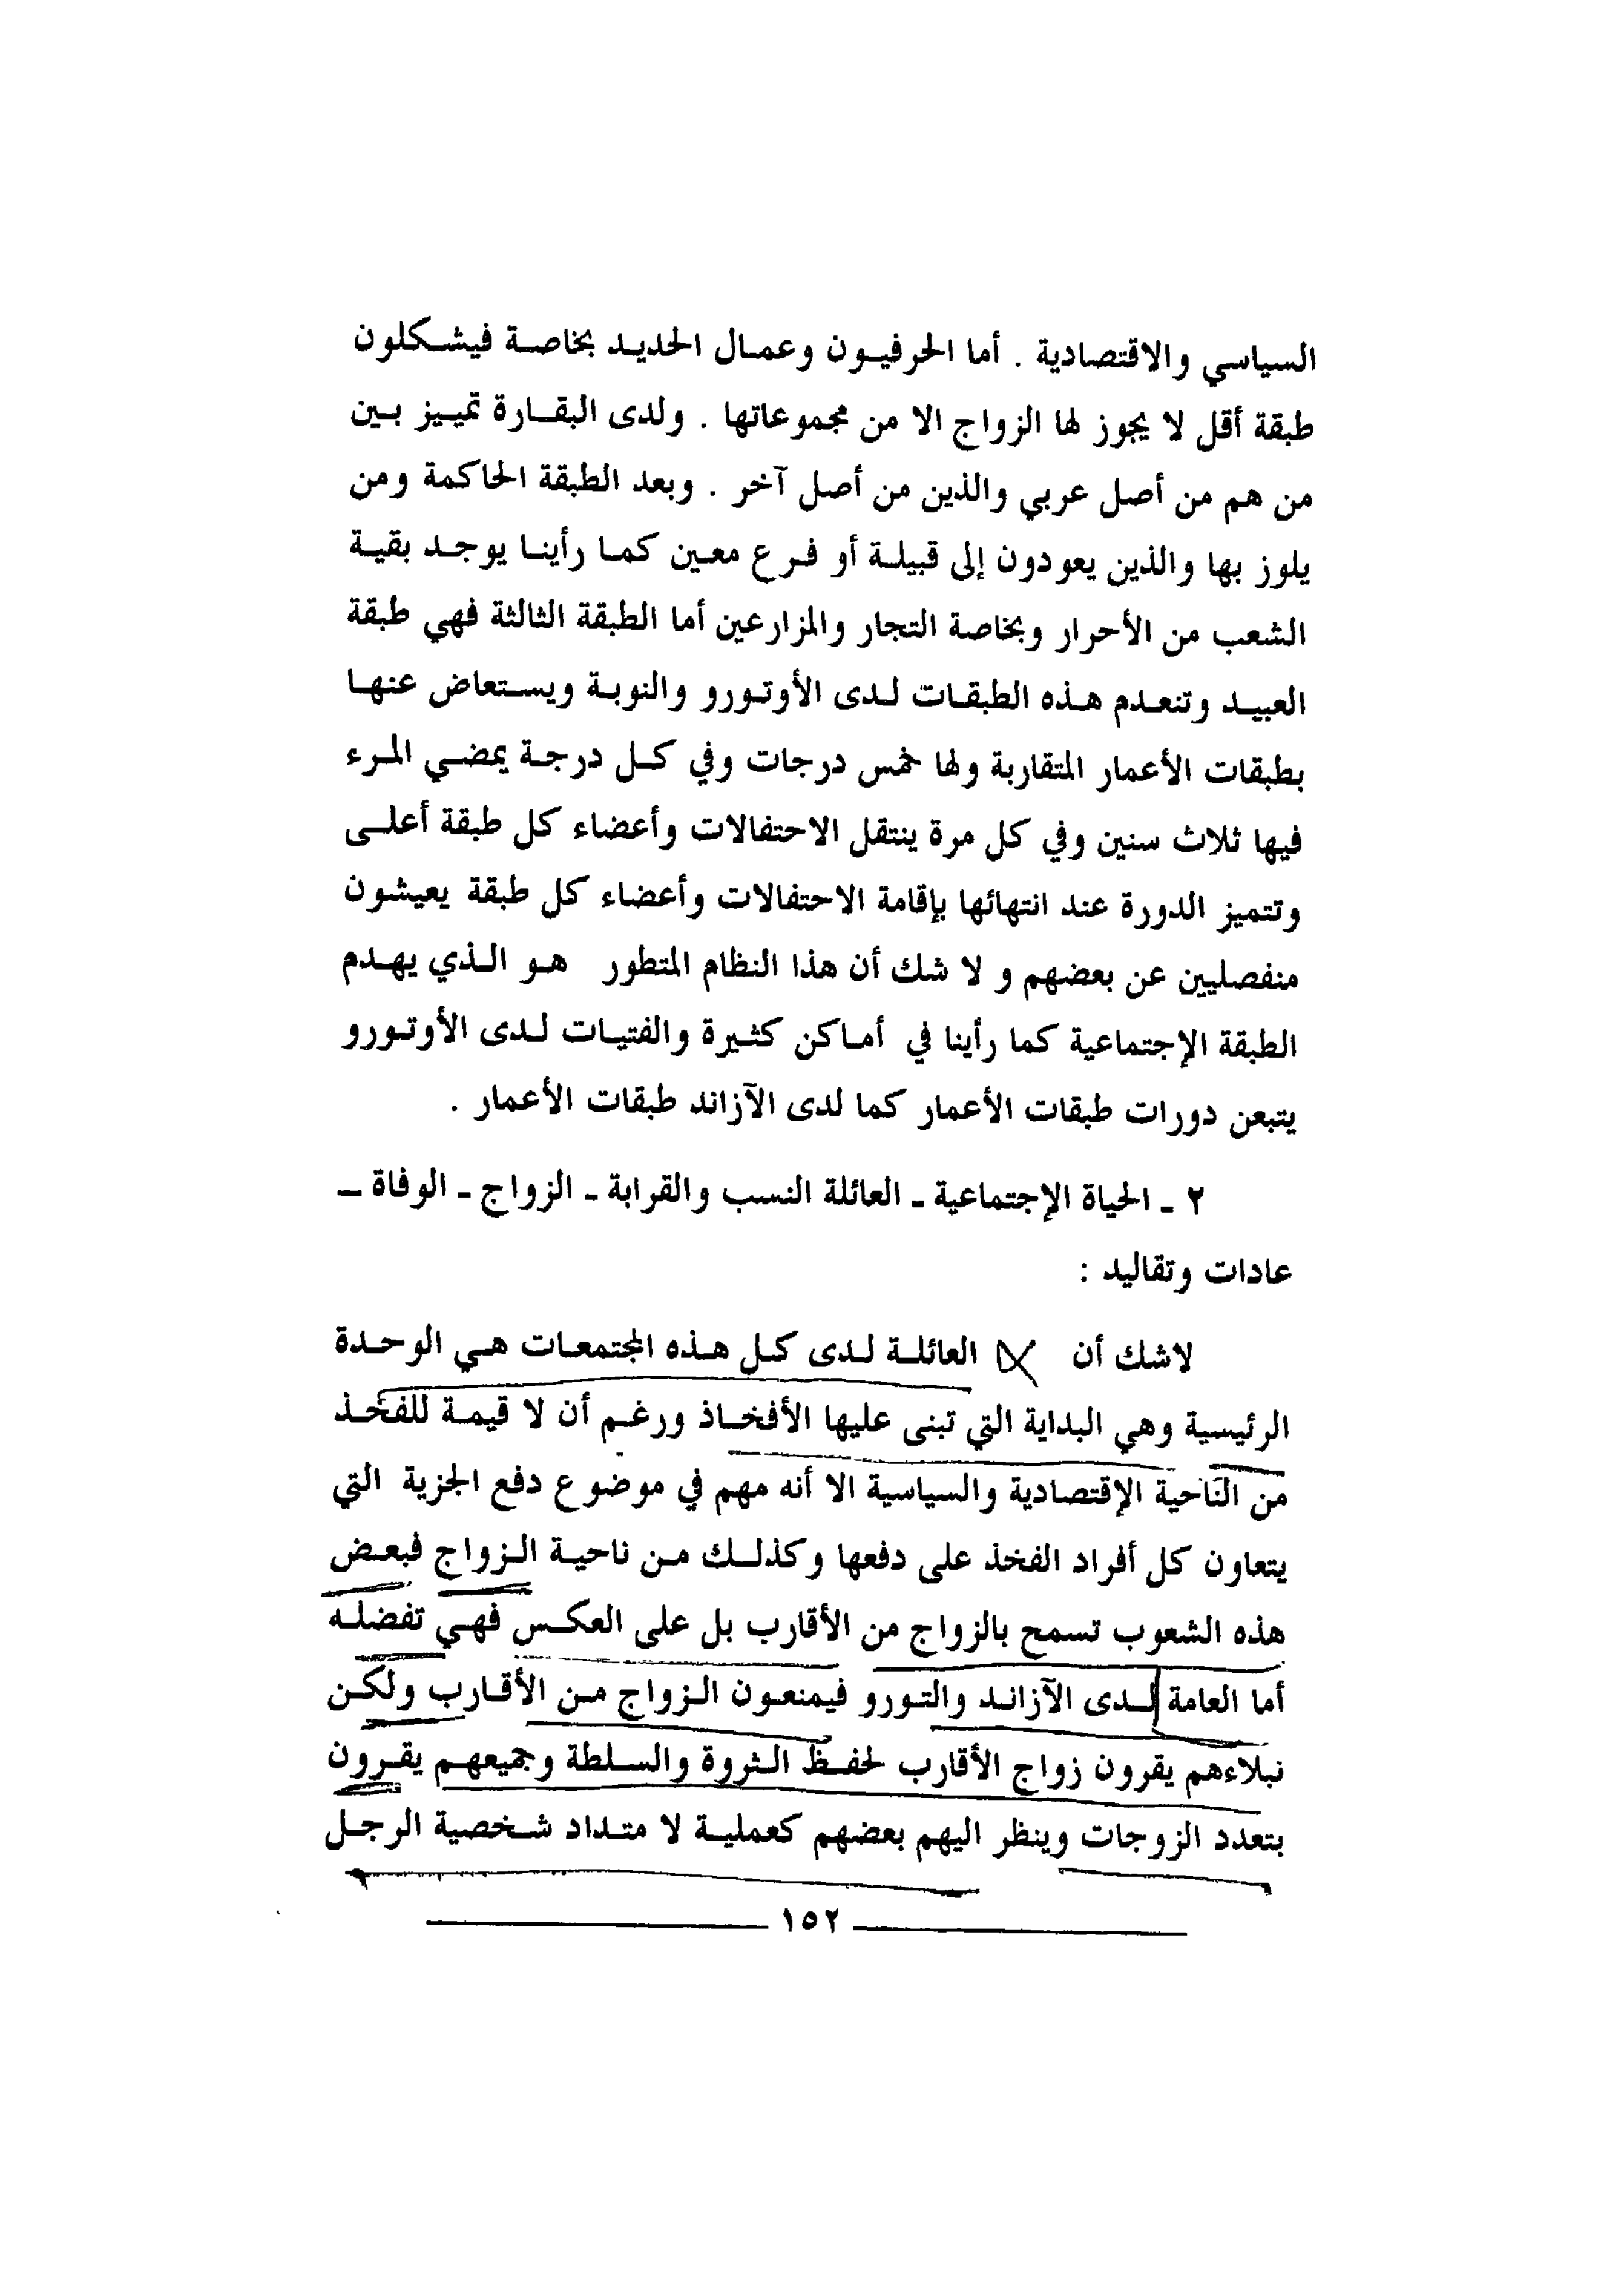 السياسي والاقتصادية . أما الحرفيون وعمال الحديد بخاصة فيشكلون
طبقة أقل لا يجوز لها الزواج الا من مجموعاتها . ولدى البقارة تمييز بين
من هم من أصل عربي والذين من أصل آخر . وبعد الطبقة الحاكمة ومن
يلوز بها والذين يعودون إلى قبيلة أو فرع معين كما رأينا يوجد بقية
الشعب من الأحرار وبخاصة التجار والمزارعين أما الطبقة الثالثة فهي طبقة
العبيد وتنعدم هذه الطبقات لدى الأوتورو والنوبة ويستعاض عنها
بطبقات الأعمار المتقاربة ولها خمس درجات وفي كل درجة يمضي المرء
فيها ثلاث سنين وفي كل مرة ينتقل الاحتفالات وأعضاء كل طبقة أعلى
وتتميز الدورة عند انتهائها بإقامة الاحتفالات وأعضاء كل طبقة يعيشون
منفصليين عن بعضهم و لا شك أن هذا النظام المتطور هو الذي يهدم
الطبقة الإجتماعية كما رأينا في أماكن كثيرة والفتيات لدى الأوتورو
يتبعن دورات طبقات الأعمار كما لدى الآزاند طبقات الأعمار .
٢ - الحياة الإجتماعية - العائلة النسب والقرابة - الزواج - الوفاة -
عادات وتقاليد :
لاشك أن العائلة لدى كل هذه المجتمعات هي الوحدة
الرئيسية وهي البداية التي تبنى عليها الأفخاذ ورغم أن لا قيمة للفخذ
من الناحية الإقتصادية والسياسية الا أنه مهم في موضوع دفع الجزية التي
يتعاون كل أفراد الفخذ على دفعها وكذلك من ناحية الزواج فبعض
هذه الشعوب تسمح بالزواج من الأقارب بل على العكس فهي تفضله
أما العامة لدى الآزاند والتورو فيمنعون الزواج من الأقارب ولكن
نبلاءهم يقرون زواج الأقارب لحفظ الثروة والسلطة وجميعهم يقرون
بتعدد الزوجات وينظر اليهم بعضهم كعملية لا متداد شخصية الرجل
١٥٢